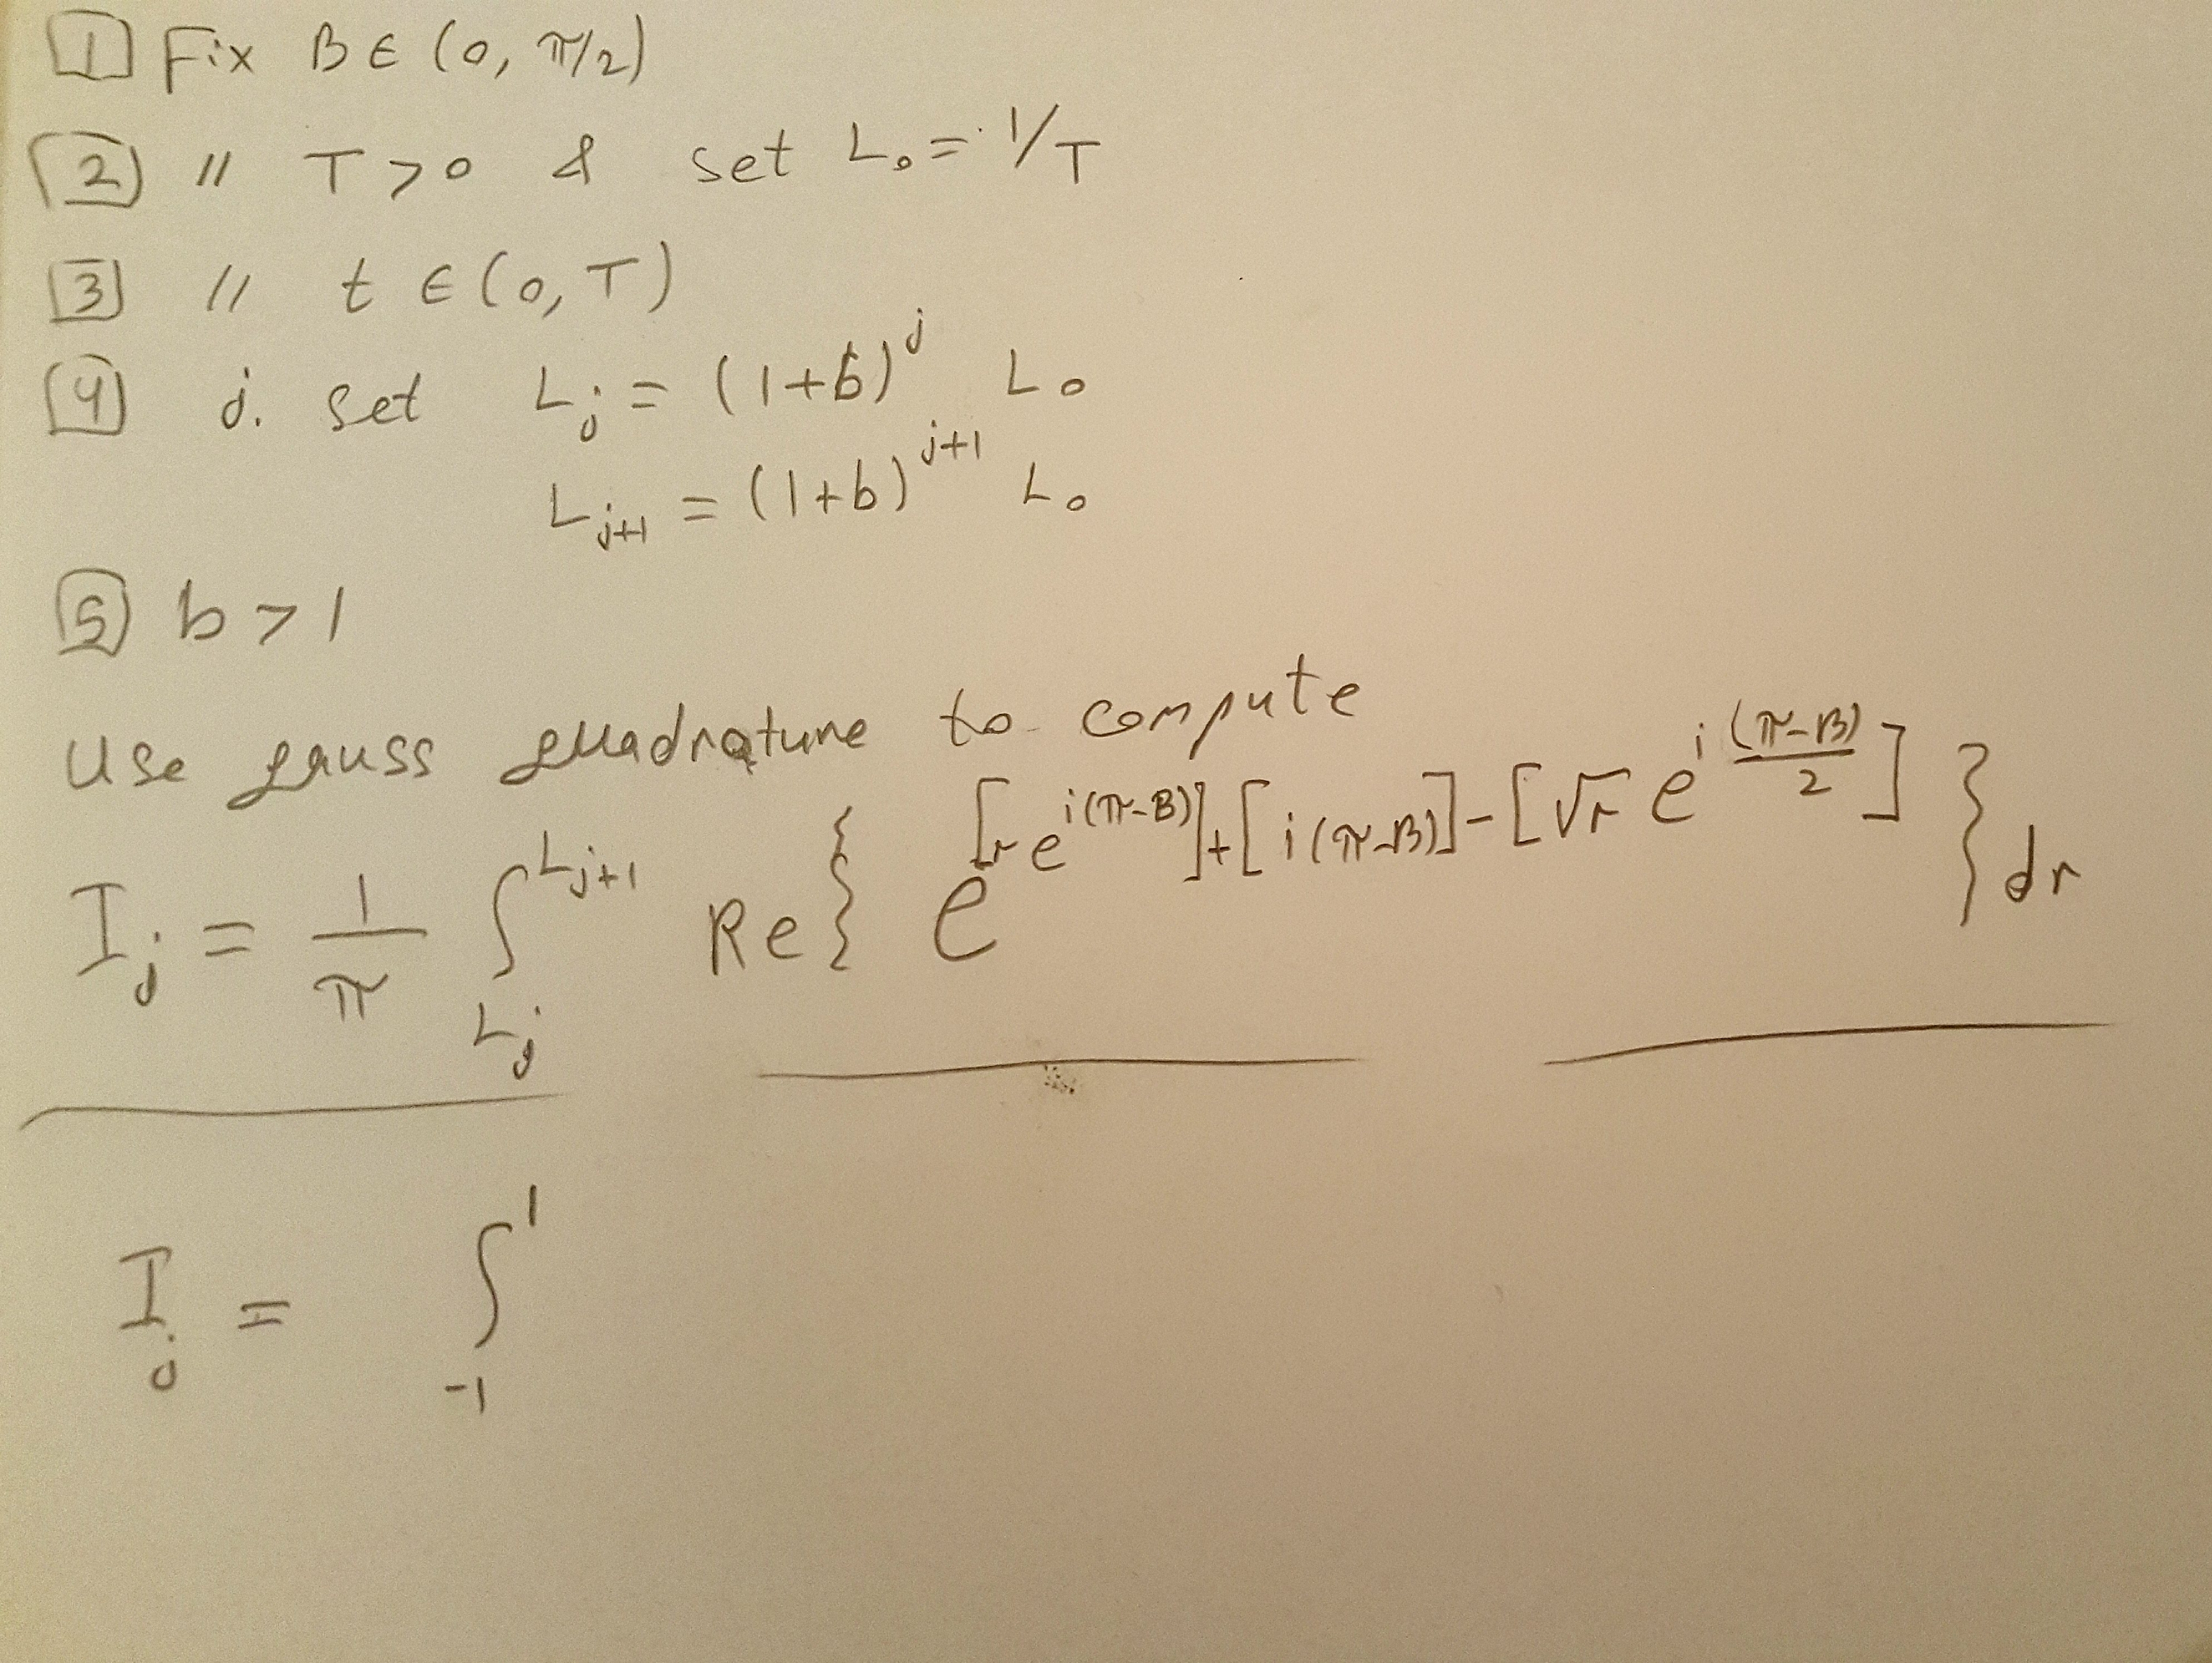 1 Fix B ∈ (0, π/2)
2 〃 T > 0 & set L₀ = 1/T
3 〃 t ∈ (0, T)
4 j. set L_j = (1+b)^j L₀
L_{j+1} = (1+b)^{j+1} L₀
5 b > 1
Use gauss quadrature to compute
I_j = 1/π ∫_{L_j}^{L_{j+1}} Re{ e^{[r e^{i(π-B)}] + [i(π-B)] - [√r e^{i(π-B)/2}]} } dr
I_j = ∫_{-1}^{1}